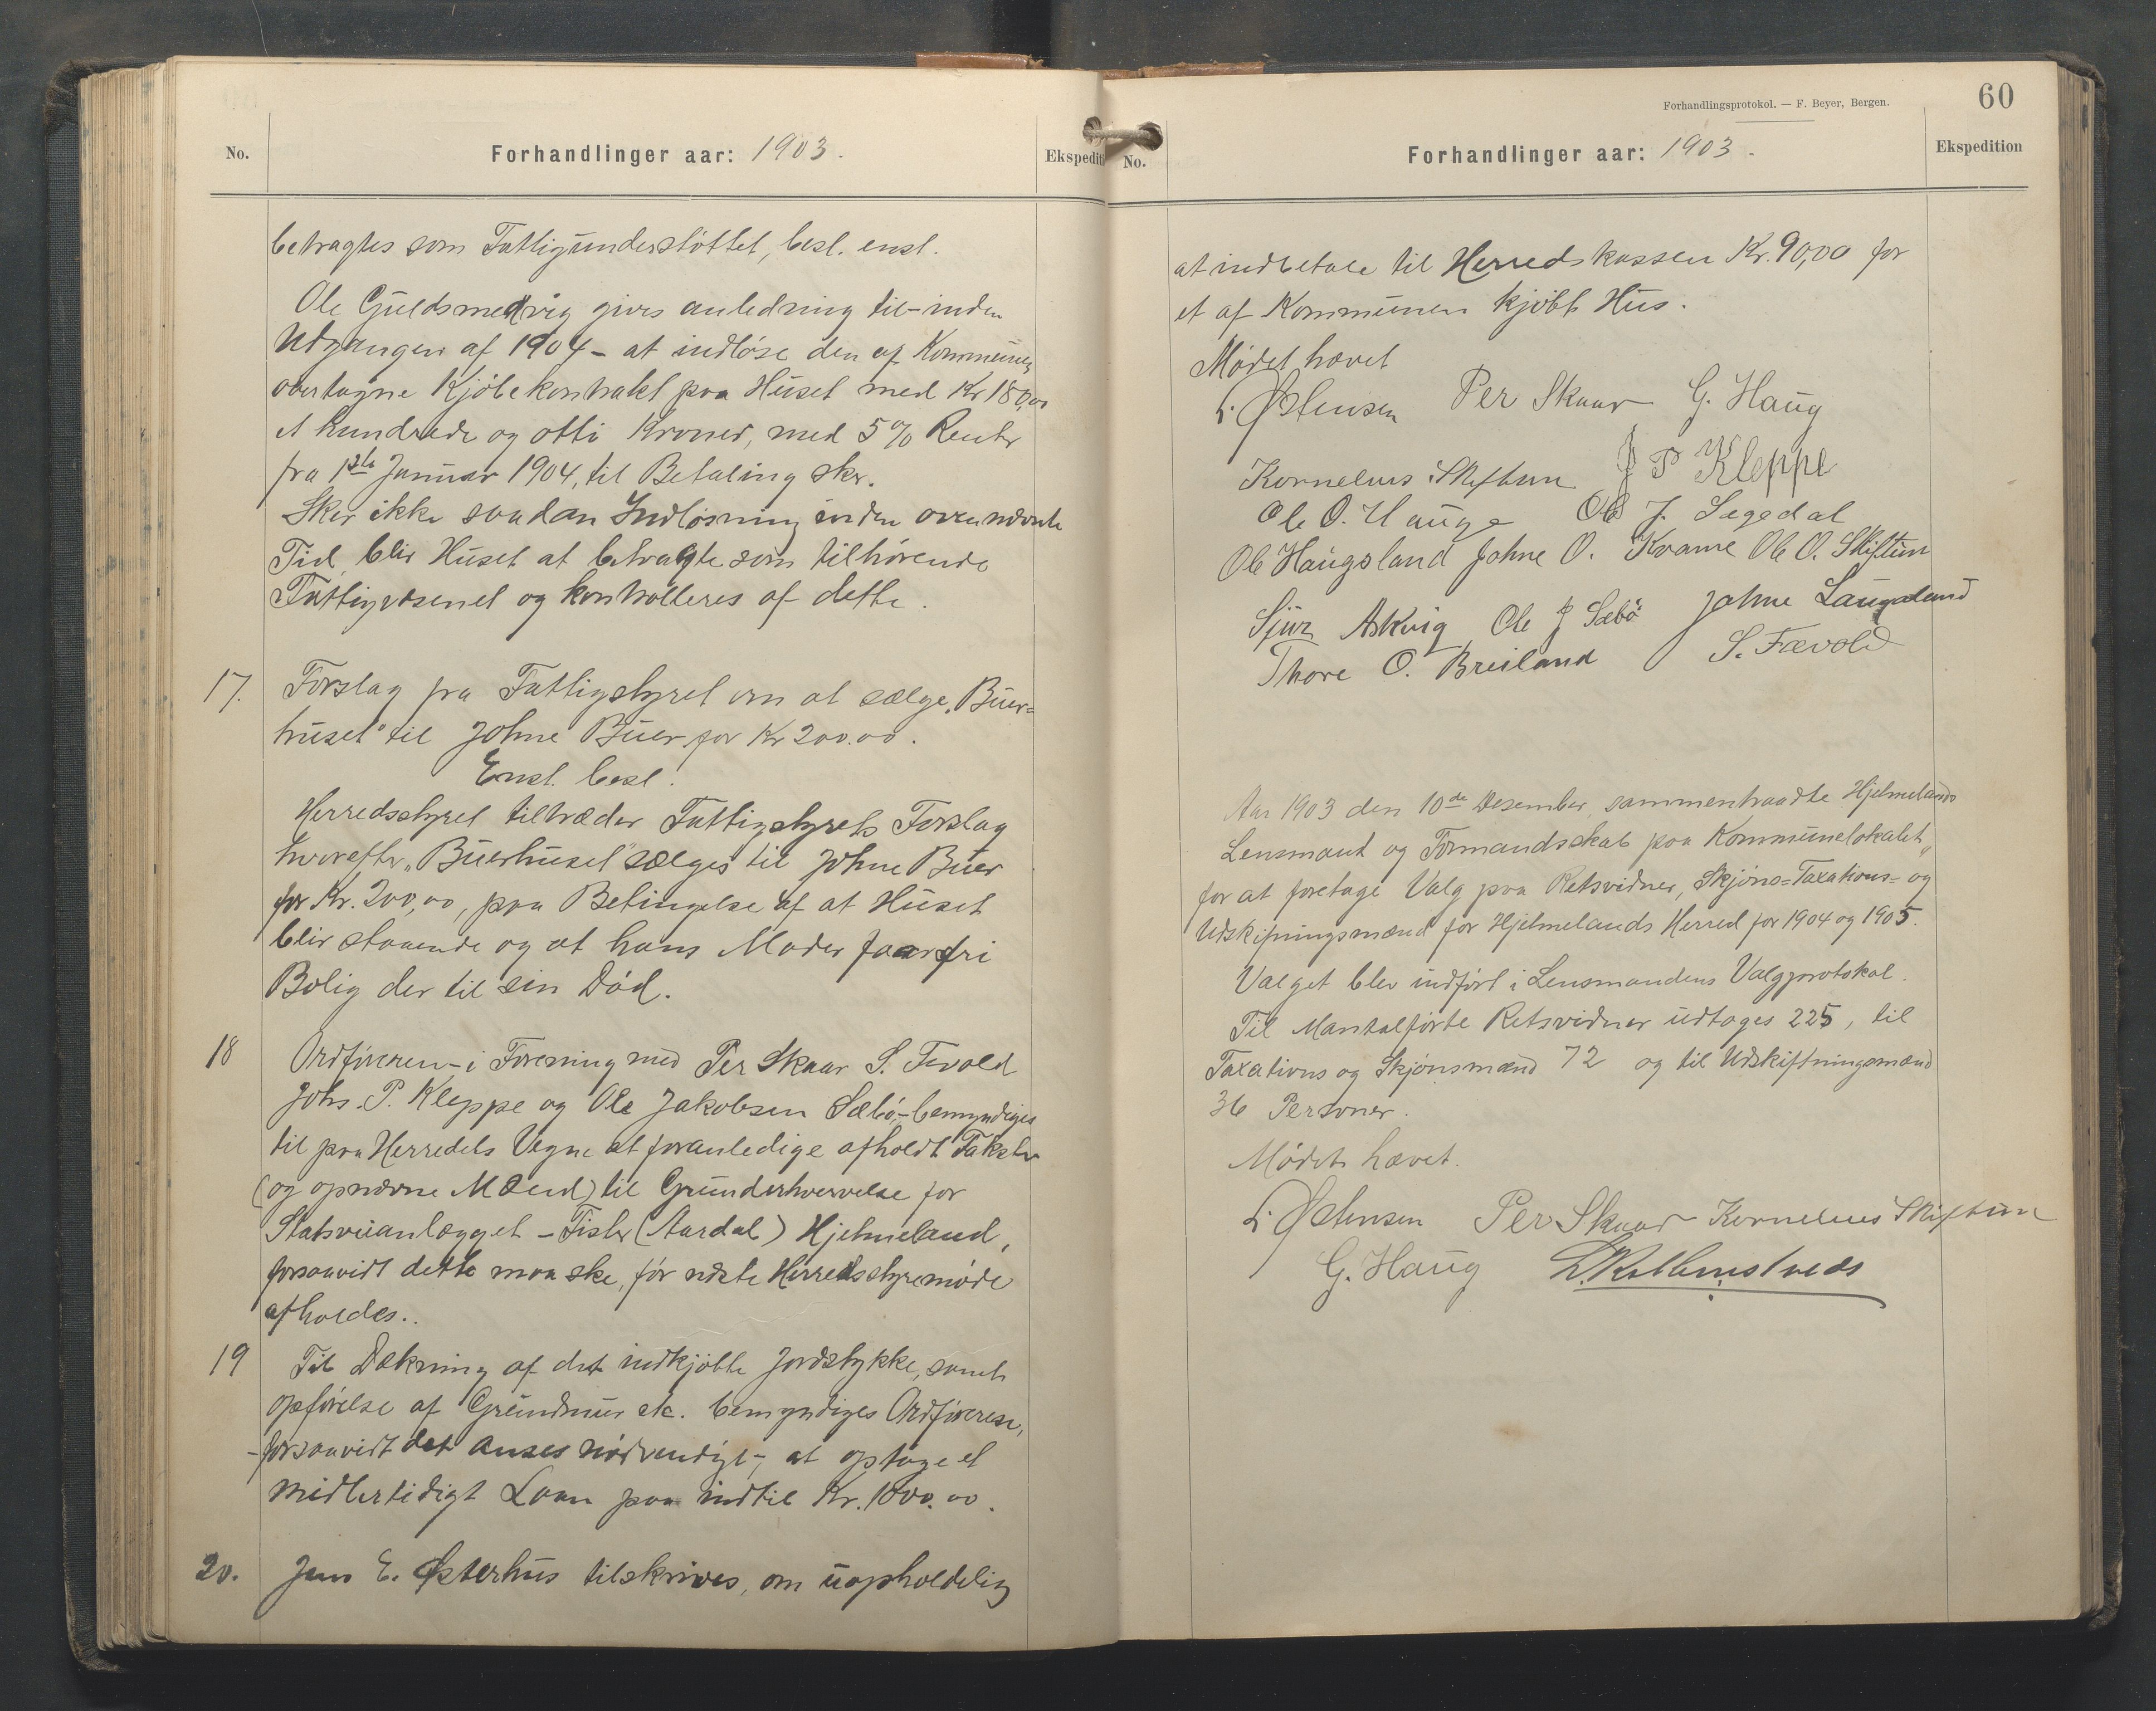 No.
Forhandlinger aar: 1903.
Ekspediti
betragtes som Fattigunderstøttet, besl. enst.
Ole Guldsmedvig gives anledning til – inden
Udgangen af 1904 – at indløse den af Kommunen
overtagne Kjøbekontrakt paa Huset med Kr 180,00
et hundrede og otti Kroner, med 5% Renter
fra 1ste Januar 1904, til Betaling sker.
Sker ikke saadan Indløsning inden ovennævnte
Tid, blir Huset at betragte som tilhørende
Fattigvæsenet og kontrolleres af dette.
17. Forslag fra Fattigstyret om at sælge „Buer=
huset" til Johne Buer for Kr 200.00.
Enst. besl.
Herredsstyret tiltræder Fattigstyrets Forslag
hvorefter „Buerhuset" sælges til Johne Buer
for Kr. 200,00, paa Betingelse af at Huset
blir staaende og at hans Moder faar fri
Bolig der til sin Död.
18 Ordføreren – i Forening med Per Skaar S. Fevold
Johs. P. Kleppe og Ole Jakobsen Sæbö – bemyndiges
til paa Herredets Vegne at foranledige afholdt Takster
(og opnævne Mænd) til Grunderhvervelse for
Statsveianlægget – Fister (Aardal) Hjelmeland,
forsaavidt dette maa ske, før næste Herredsstyremøde
afholdes..
19 Til Dækning af det indkjøbte Jordstykke, samt
opførelse af Grundmur etc. bemyndiges Ordføreren,
– forsaavidt det anses nødvendigt –, at optage et
midlertidigt Laan paa indtil Kr. 1000.00.
20. Jens E. Østerhus tilskrives, om uopholdelig
Forhandlingsprotokol. — F. Beyer, Bergen.
60
No.
Forhandlinger aar: 1903.
Ekspedition
at indbetale til Herredskassen Kr. 90,00 for
et af Kommunen kjøbt Hus.
Mødet hævet
L. Østensen Per Skaar G. Haug
Kornelius Skiftun J P Kleppe
Ole O. Hauge Ole J. Segedal
Ole Haugsland Johne O. Kvame Ole O. Skiftun
Sjur Askvig Ole J Sæbø Johne Laugaland
Thore O. Breiland S. Fævold
Aar 1903 den 10de Desember sammentraadte Hjelmelands
Lensmant og Formandsskab paa Kommunelokalet,
for at foretage Valg paa Retsvidner, Skjøns=Taxations= og
Udskiftningsmænd for Hjelmelands Herred for 1904 og 1905.
Valget blev indført i Lensmandens Valgprotokol.
Til Mantalførte Retsvidner udtoges 225, til
Taxations og Skjønsmænd 72 og til Udskiftningsmænd
36 Personer.
Mødet hævet.
L. Østensen Per Skaar Kornelius Skiftun
G. Haug